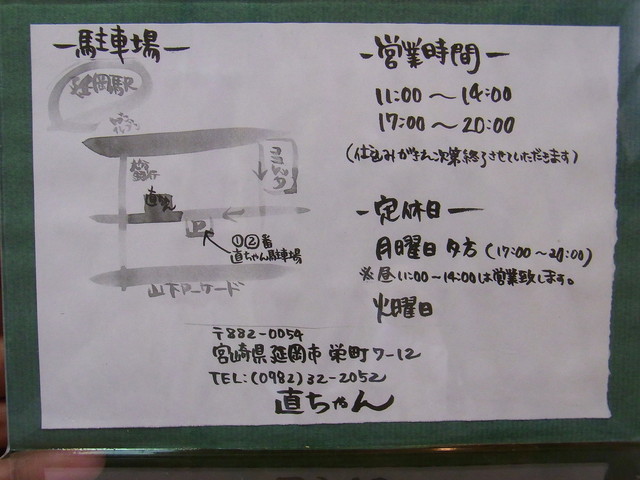 ー駐車場ー
延岡駅
ココレッタ
直ちゃん
P
①②番
直ちゃん駐車場
山下アーケード
ー営業時間ー
11:00〜14:00
17:00〜20:00
(仕込みがきれ次第終了させていただきます)
ー定休日ー
月曜日 夕方 (17:00〜20:00)
※昼11:00〜14:00は営業致します。
火曜日
〒882-0054
宮崎県延岡市栄町7-12
TEL:(0982)32-2052
直ちゃん